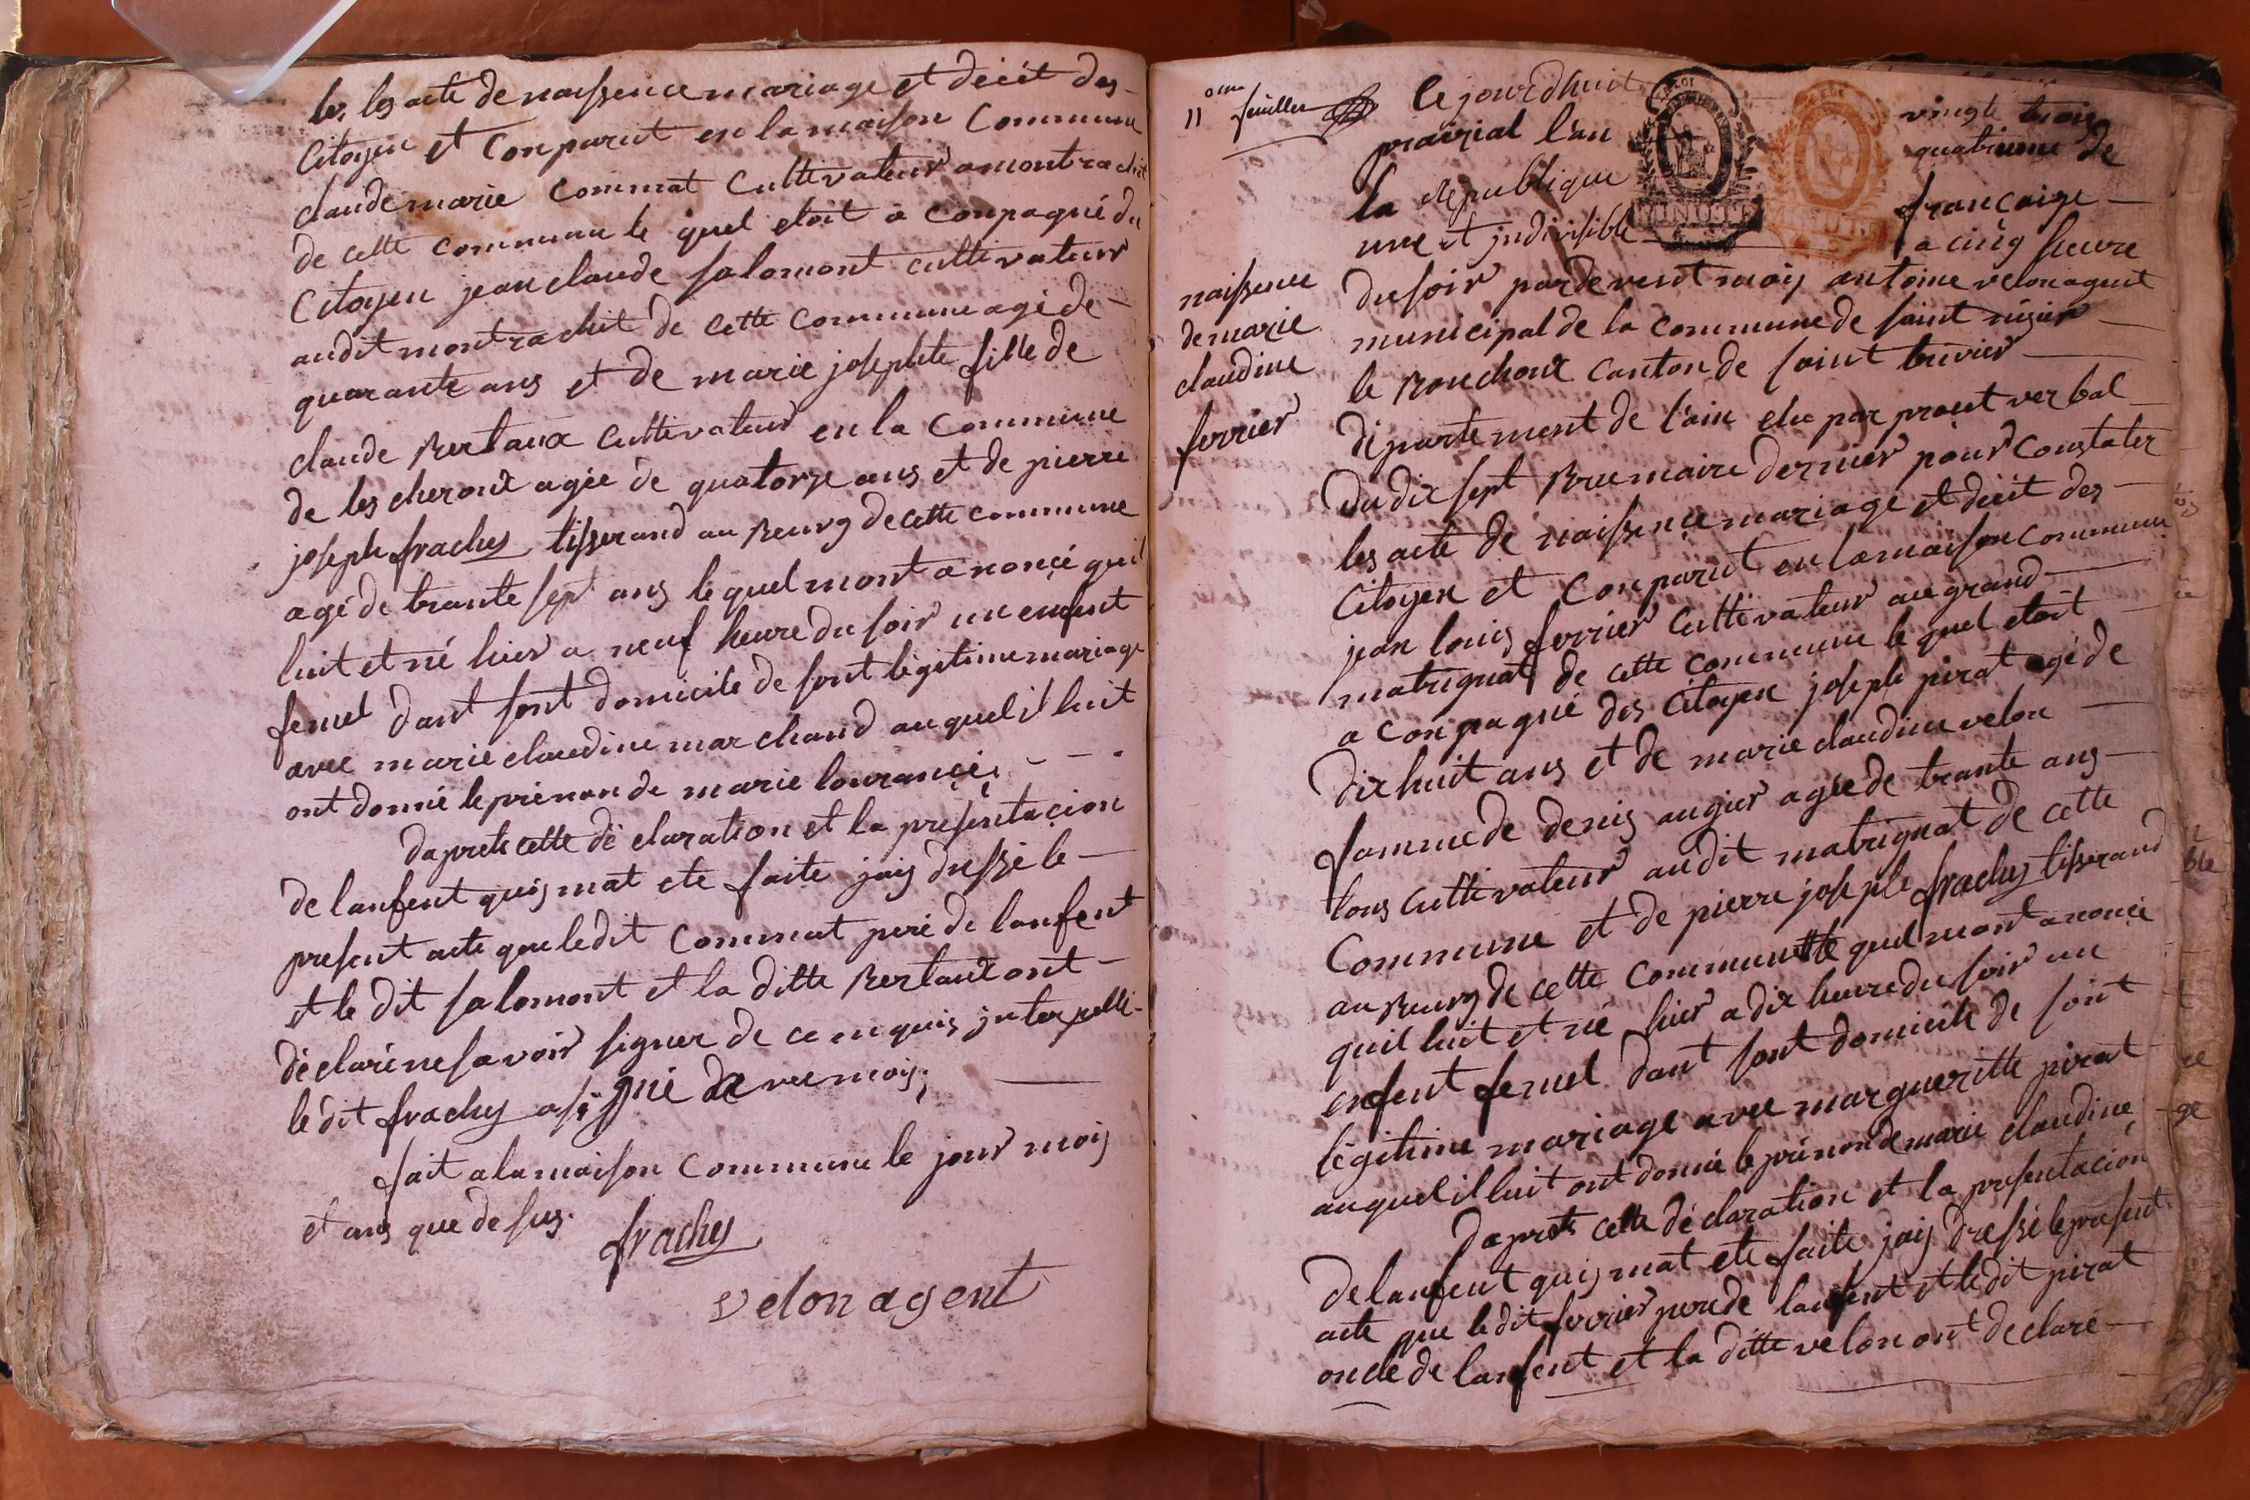 les acte de naissence mariage et décet des
Citoyen et Conparut en la maison Commune
claude marie Commat Cultivateur a montrachit
de cette commune le quel etoit a conpagné du
Citoyen jean claude salomont cultivateur
audit montrachit de cette commune agé de
quarante ans et de marie josephte fille de
claude Bertaux cultivateur en la Commune
de les cheroux agée de quatorze ans et de pierre
joseph frachy tisserand au Bourg de cette commune
agé de trante sept ans le quel mont anoncé quil
luit et né hier a neuf heure du soir un enfent
femel dant sont domicile de sont légitime mariage
avec marie claudine marchand auquel il luit
ont donné le prénon de marie lourance
daprete cette déclaration et la présentacion
de lanfent quis mat ete faite jais dressé le
present acte que le dit Commat peré de lanfent
et le dit salomont et la ditte Bertaux ont
déclaré ne savoir signer de ce enquis interpellé
le dit frachy a signé avec mois
fait a la maison Commune le jour mois
et ans que desus.
frachy
velon agent
11 eme feuillet
Cejourdhuit vingte trois
prairial l'an quatrieme de
la republique francaise
une et jndivisible a cinq heure
naissence
de marie
claudine
ferrier
du soir pardevent mois antoine velon agent
municipal de la commune de saint nizier
le Bouchoux canton de saint trivier
département de l'ain elu par proset verbal
du dix sept Brumaire dernier pour Constater
les acte de naissence mariage et décit des
Citoyen et Conparut en la maison commune
jean louis ferrier Cultivateur au grand
matrignat de cette commune le quel etoit
a conpagné des Citoyen joseph pirat agé de
dix huit ans et de marie claudine velon
famme de denis augier agée de trante ans
tous cultivateur audit matrignat de cette
Commune et de pierre joseph frachy tisserand
au Bourg de cette commune le quel mont anoncé
quil luit et né hier a dix heure du soir un
enfent femel dant sont domicile de soint
légitime mariage avec margueritte pirat
auquel il luit ont donné le prénon de marie claudine
daprete cette déclaration et la presentacion
de lanfent quis mat ete faite jais dressé le present
acte que le dit ferrier pere de lanfent et le dit pirat
oncle de lanfent et la ditte velon ont declaré